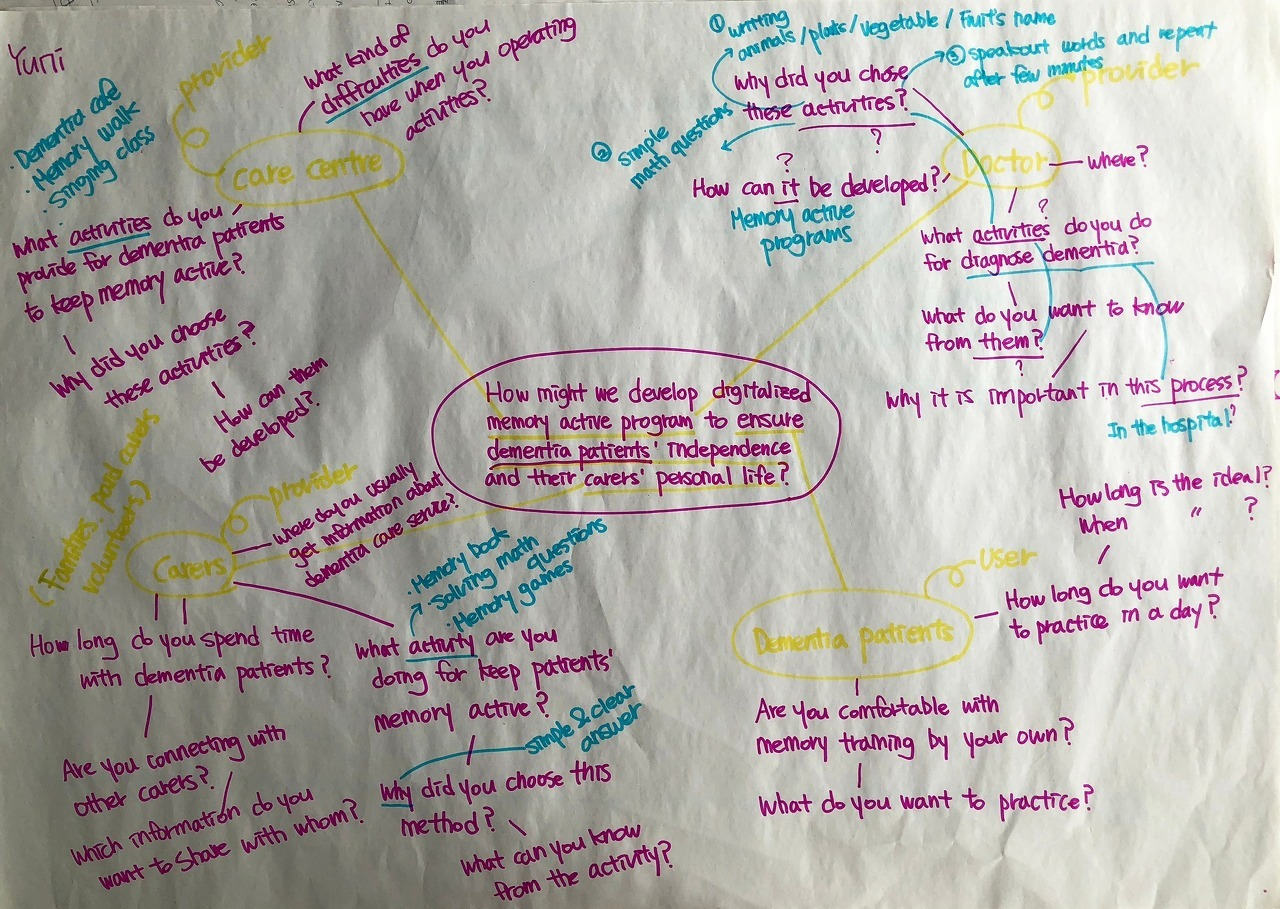 Yuni
provider
· Dementia cafe
· Memory walk
· Singing class
care centre
what kind of
difficulties do you
have when you operating
activities?
what activities do you
provide for dementia patients
to keep memory active?
Why did you choose
these activities?
How can them
be developed?
① writing
animals/plants/vegetable/Fruit's name
③ speakout words and repeat
after few minutes
② simple
math questions
why did you chose
these activities?
?
provider
Doctor
where?
?
How can it be developed?
Memory active
programs
?
what activities do you do
for diagnose dementia?
what do you want to know
from them?
?
why it is important in this process?
In the hospital?
How might we develop digitalized
memory active program to ensure
dementia patients' independence
and their carers' personal life?
(Families, paid carers
volunteers)
provider
Carers
where do you usually
get information about
dementia care service?
How long do you spend time
with dementia patients?
Are you connecting with
other carers?
which information do you
want to share with whom?
· Memory book
· Solving math questions
· Memory games
what activity are you
doing for keep patients'
memory active?
simple & clear
answer
why did you choose this
method?
what can you know
from the activity?
User
Dementia patients
How long is the ideal?
when " ?
How long do you want
to practice in a day?
Are you comfortable with
memory training by your own?
What do you want to practice?